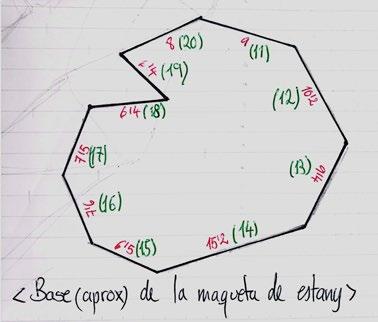 8 (20)
9 (11)
6'4 (19)
(12) 10'2
6'4 (18)
7'5 (17)
(13) 9'4
7'6 (16)
15'2 (14)
6'5 (15)
<Base (aprox) de la maqueta de estany>